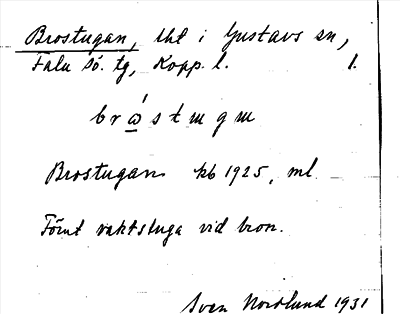 Brostugan, tht i Gustavs sn,
Falu sö. tg, Kopp. l. 1.
Brostugan kb 1925, ml.
Förut vaktstuga vid bron.
Sven Nordlund 1931